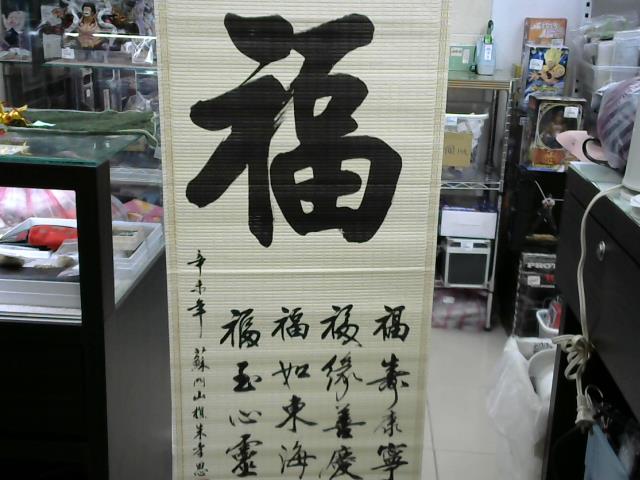 福
福壽康寧
福緣善慶
福如東海
福至心靈
辛未年 蘇門山樵朱孝思